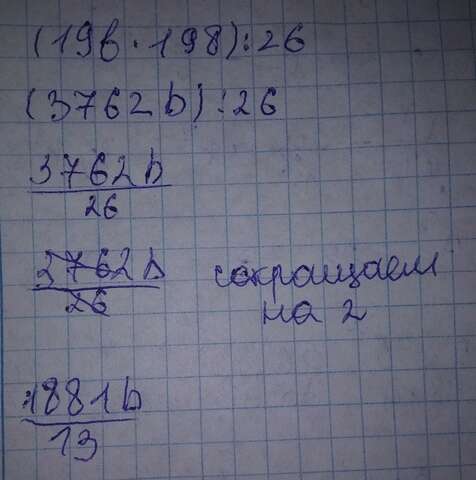 (19b · 198) : 26
(3762b) : 26
3762b
26
3762b сокращаем
26 на 2
1881b
13